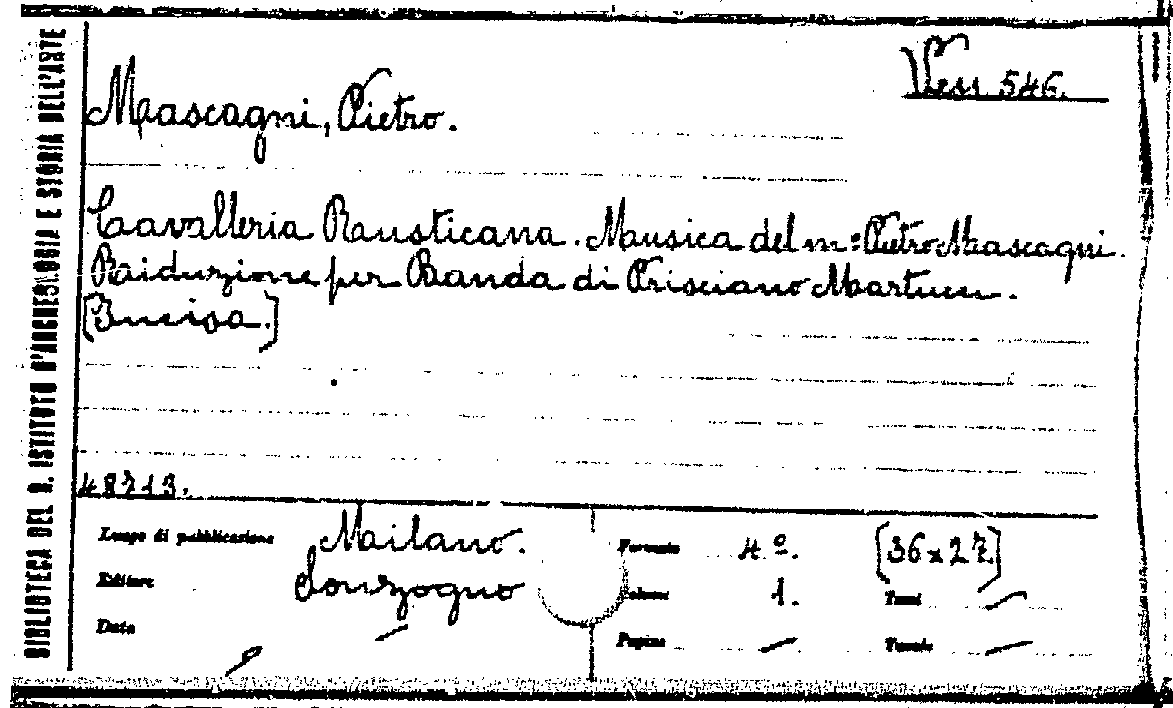 BIBLIOTECA DEL R. ISTITUTO D'ARCHEOLOGIA E STORIA DELL'ARTE
Vess 546.
Mascagni, Pietro.
Cavalleria Rusticana. Musica del m.º Pietro Mascagni.
Riduzione per Banda di Prisciano Martucci.
[Incisa.]
48713.
Luogo di pubblicazione Milano.
Editore Sonzogno
Data —
Formato 4º. [36x27.]
Volumi 1. Tomi —
Pagine — Tavole —